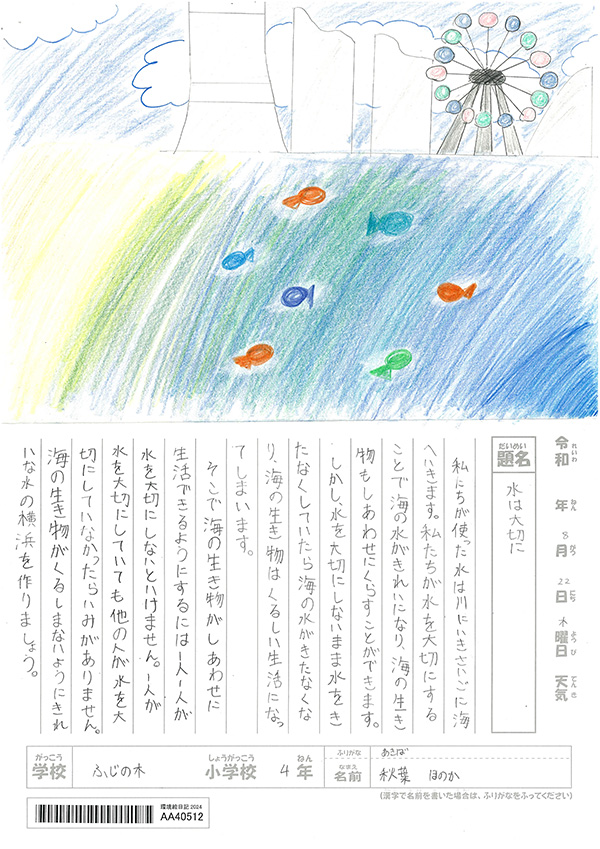 令和 れいわ 年 ねん 8 月 がつ 22 日 にち 木 曜日 ようび 天気 てんき
題名 だいめい
水は大切に
私たちが使った水は川にいきさいごに海
へいきます。私たちが水を大切にする
ことで海の水がきれいになり、海の生き
物もしあわせにくらすことができます。
しかし、水を大切にしないまま水をき
たなくしていたら海の水がきたなくな
り、海の生き物はくるしい生活になっ
てしまいます。
そこで海の生き物がしあわせに
生活できるようにするには一人一人が
水を大切にしないといけません。一人が
水を大切にしていても他の人が水を大
切にしていなかったらいみがありません。
海の生き物がくるしまないようにきれ
いな水の横浜を作りましょう。
学校 がっこう ふじの木 小学校 しょうがっこう 4 年 ねん
ふりがな あきば
名前 なまえ 秋葉 ほのか
(漢字で名前を書いた場合は、ふりがなをふってください)
環境絵日記 2024
AA40512